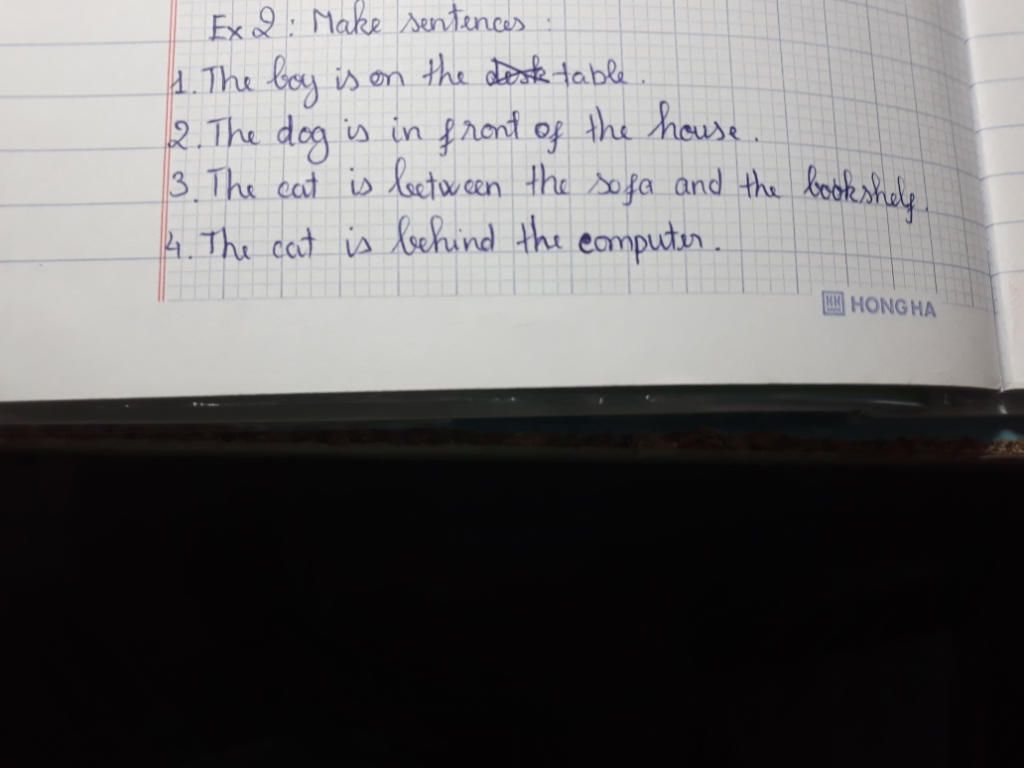 Ex 2: Make sentences:
1. The boy is on the desk table.
2. The dog is in front of the house.
3. The cat is between the sofa and the bookshelf.
4. The cat is behind the computer.
HH HONG HA